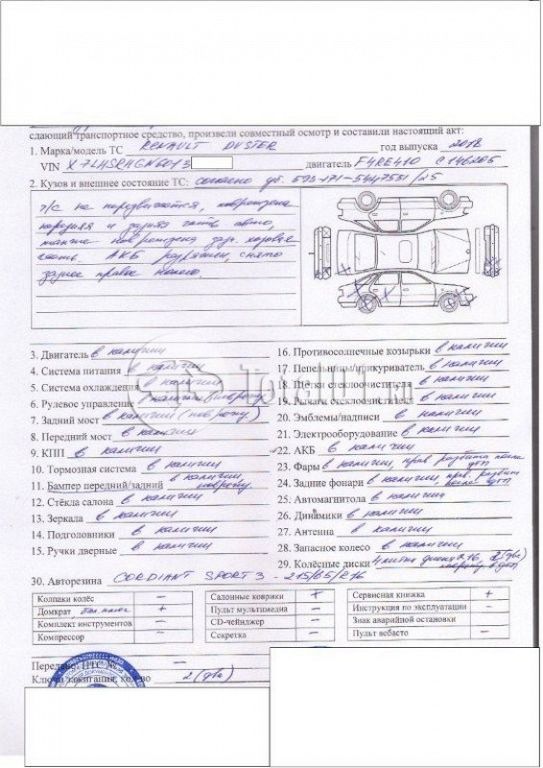 сдающий транспортное средство, произвели совместный осмотр и составили настоящий акт:
1. Марка/модель ТС RENAULT DUSTER год выпуска 2018
VIN X7LHSRHGN6013 двигатель F4RE410 C146205
2. Кузов и внешнее состояние ТС: согласно 573-171-5447551/25
т/с не передвигается, повреждена
передняя и задняя часть авто,
также повреждена
АКБ разряжен, снято
заднее правое колесо.
3. Двигатель в наличии
4. Система питания в наличии
5. Система охлаждения в наличии
6. Рулевое управление в наличии
7. Задний мост в наличии
8. Передний мост в наличии
9. КПП в наличии
10. Тормозная система в наличии
11. Бампер передний/задний в наличии,
12. Стёкла салона в наличии
13. Зеркала в наличии
14. Подголовники в наличии
15. Ручки дверные в наличии
16. Противосолнечные козырьки в наличии
17. Пепельница/прикуриватель в наличии
18. Щётки стеклоочистителя в наличии
19. Рычаги стеклоочистителя в наличии
20. Эмблемы/надписи в наличии
21. Электрооборудование в наличии
22. АКБ в наличии
23. Фары в наличии, прав. разбита после дтп
24. Задние фонари в наличии, прав. разбит после дтп
25. Автомагнитола в наличии
26. Динамики в наличии
27. Антенна в наличии
28. Запасное колесо в наличии
29. Колёсные диски 4 литые диски R16, 2 (два)
30. Авторезина CORDIANT SPORT 3 - 215/65/R16
Колпаки колёс –
Домкрат, +
Комплект инструментов –
Компрессор –
Салонные коврики +
Пульт мультимедиа –
CD-чейнджер –
Секретка –
Сервисная книжка +
Инструкция по эксплуатации –
Знак аварийной остановки –
Пульт вебасто –
Передано: ПТС –
Ключи зажигания, кол-во 2 (два)